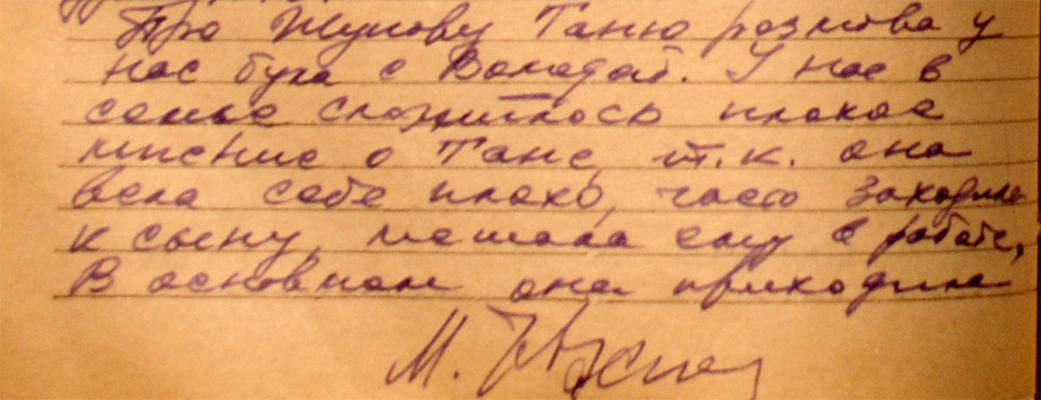 Про Жукову Таню розмова у
нас була с Володей. У нас в
семье сложилось плохое
мнение о Тане, т.к. она
вела себе плохо, часто заходила
к сыну, мешала ему в работе,
В основном она приходила
М.